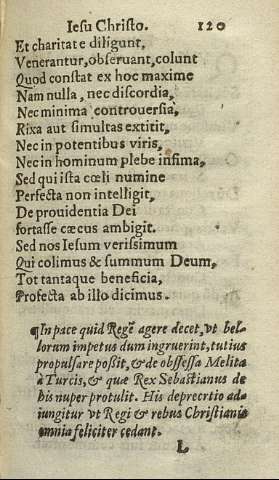 Iesu Christo. 120
Et charitate diligunt,
Venerantur, obseruant, colunt
Quod constat ex hoc maxime
Nam nulla, nec discordia,
Nec minima controuersia,
Rixa aut simultas extitit,
Nec in potentibus viris,
Nec in hominum plebe infima,
Sed qui ista cœli numine
Perfecta non intelligit,
De prouidentia Dei
fortasse cæcus ambigit.
Sed nos Iesum verissimum
Qui colimus & summum Deum,
Tot tantaque beneficia,
Profecta ab illo dicimus.
¶In pace quid Regẽ agere decet, vt bel-
lorum impetus dum ingruerint, tutius
propulsare possit, & de obssessa Melita
à Turcis, & quæ Rex Sebastianus de
bis nuper protulit. His deprectio ad-
iungitur vt Regi & rebus Christianis
omnia feliciter cedant.
L